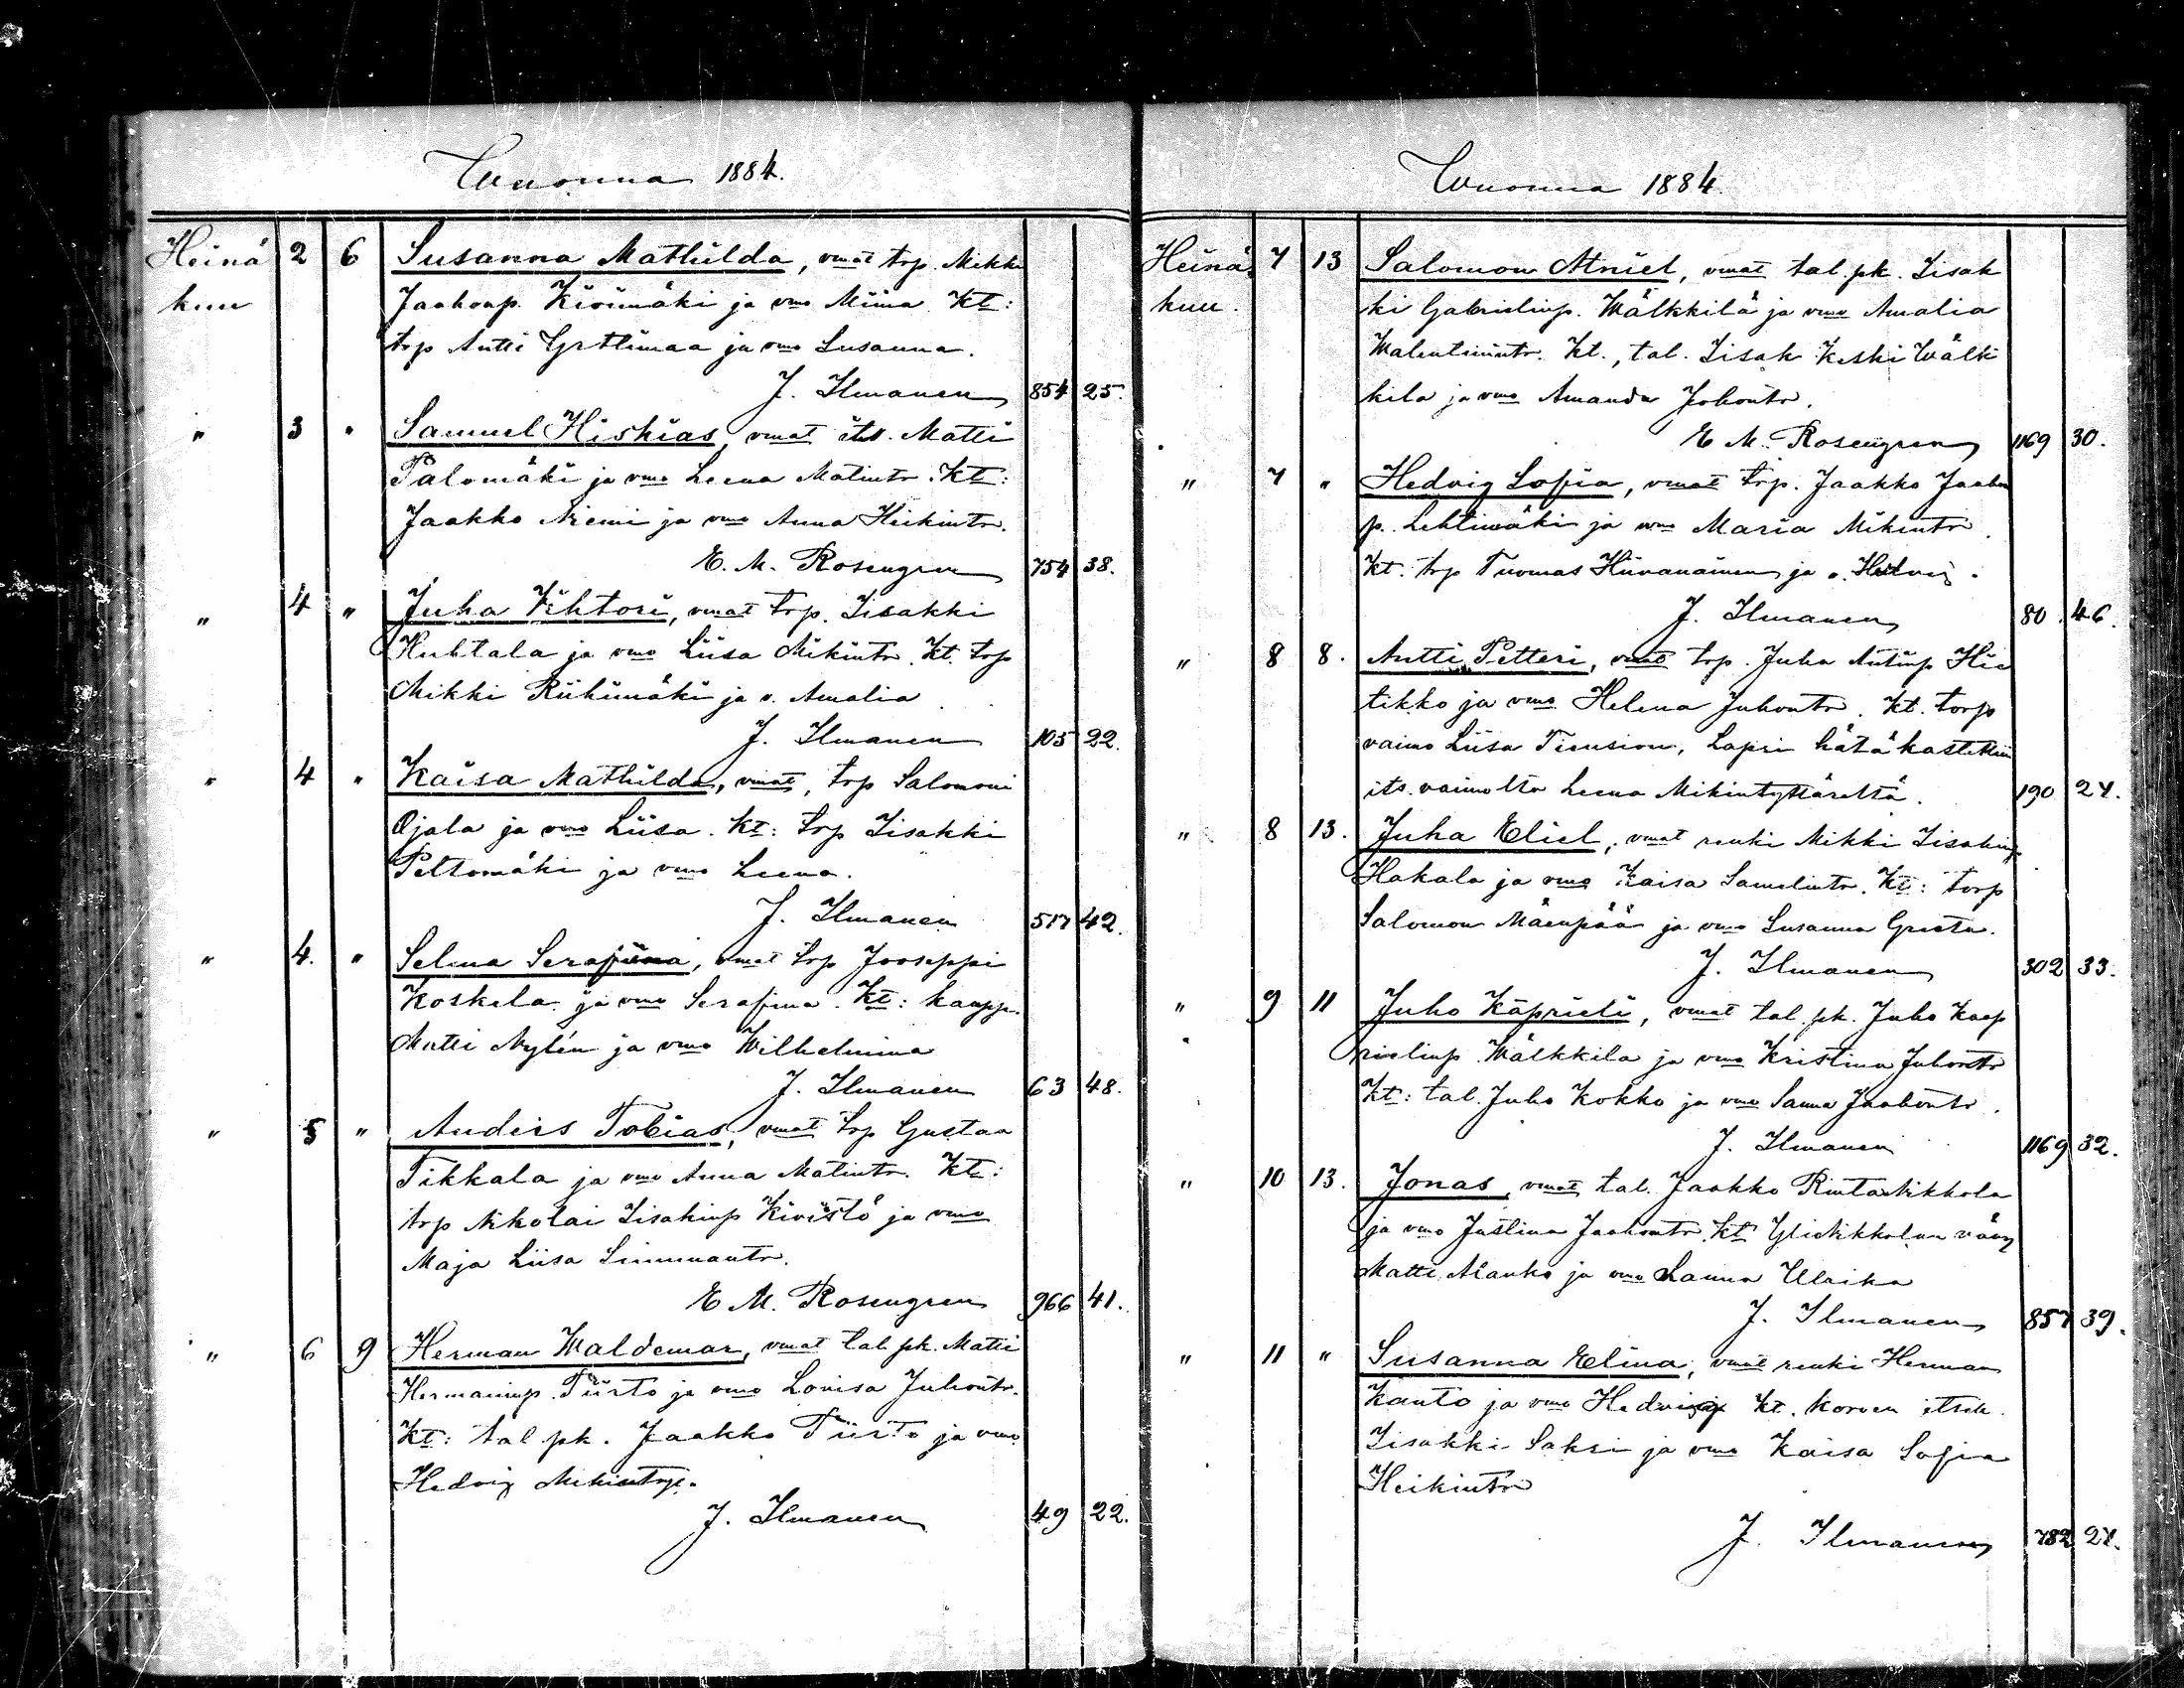 Wuonna 1884.
Heinä 2 6 Susanna Mathilda, vmat trp. Mikki
kuu Jaakonp. Kivimäki ja vmo Miina Kt:
trp Antti Yrttimaa ja vmo Susanna.
J. Ilmanen 854 25.
" 3 " Samuel Hiskias, vmat itsl. Matti
Palomäki ja vmo Leena Matintr. Kt:
Jaakko Niemi ja vmo Anna Heikintr.
E. M. Rosengren 754 38.
" 4 " Juha Vihtori, vmat trp. Iisakki
Huhtala ja vmo Liisa Mikintr. Kt. trp
Mikki Riihimäki ja v. Amalia
J. Ilmanen 105 22.
" 4 " Kaisa Mathilda, vmat, trp Salomoni
Ojala ja vmo Liisa. Kt: trp Iisakki
Peltomäki ja vmo Leena.
J. Ilmanen 517 42.
" 4. " Selma Serafiina, vmat trp Jooseppi
Koskela ja vmo Serafina. Kt: kaupp.
Matti Nylén ja vmo Wilhelmina
J. Ilmanen 63 48.
" 5 " Anders Tobias, vmat trp Gustaa
Tikkala ja vmo Anna Matintr. Kt:
trp Nikolai Iisakinp Kivistö ja vmo
Maja Liisa Simmuantr.
E. M. Rosengren 966 41.
" 6 9 Herman Waldemar, vmat tal. pk. Matti
Hermaninp. Tiirto ja vmo Lovisa Juhontr.
Kt: tal. pk. Jaakko Tiirto ja vmo
Hedvig
J. Ilmanen 49 22.
Wuonna 1884.
Heinä 7 13 Salomon Atniel, vmat tal. pk. Iisak
kuu. ki Gabrielinp. Wälkkilä ja vmo Amalia
Walentinintr. Kt., tal. Iisak Keski Wälk
kila ja vmo Amanda Juhontr.
E. M. Rosengren 1169 30.
" 7 " Hedvig Sofia, vmat trp. Jaakko Jaakon
p. Lehtimäki ja vmo Maria Mikintr.
Kt. trp Tuomas Hiivanainen ja v. Hedvig.
J. Ilmanen 80. 46.
" 8 8. Antti Petteri, vmat trp. Juha Antinp Hie
tikko ja vmo Helena Juhontr. Kt. torp
vaimo Liisa Lapsi hätäkastettiin
its. vaimolta Leena Mikintyttäreltä. 190 27.
" 8 13. Juha Eliel, vmat renki Mikki Iisakinp
Hakala ja vmo Kaisa Samelintr. Kt: torp
Salomon Mäenpää ja vmo Susanna Greeta.
J. Ilmanen 302 33.
" 9 11 Juho Käprieli, vmat tal. pk. Juho Kaap
rielinp Wälkkila ja vmo Kristina Juhontr
Kt: tal. Juho Kokko ja vmo Sanna Jaakontr.
J. Ilmanen 1169 32.
" 10 13. Jonas, vmat tal. Jaakko Rinta Nikkola
ja vmo Justiina Jaakontr. Kt: YliNikkolan vävy
Matti Alanko ja vmo Sanna Ulrika
J. Ilmanen 857 39.
" 11 " Susanna Elina, vmat renki Herman
Kanto ja vmo Hedvig Kt. Korven itsell.
Iisakki Saksi ja vmo Kaisa Sofia
Heikintr
J. Ilmanen 782 27.